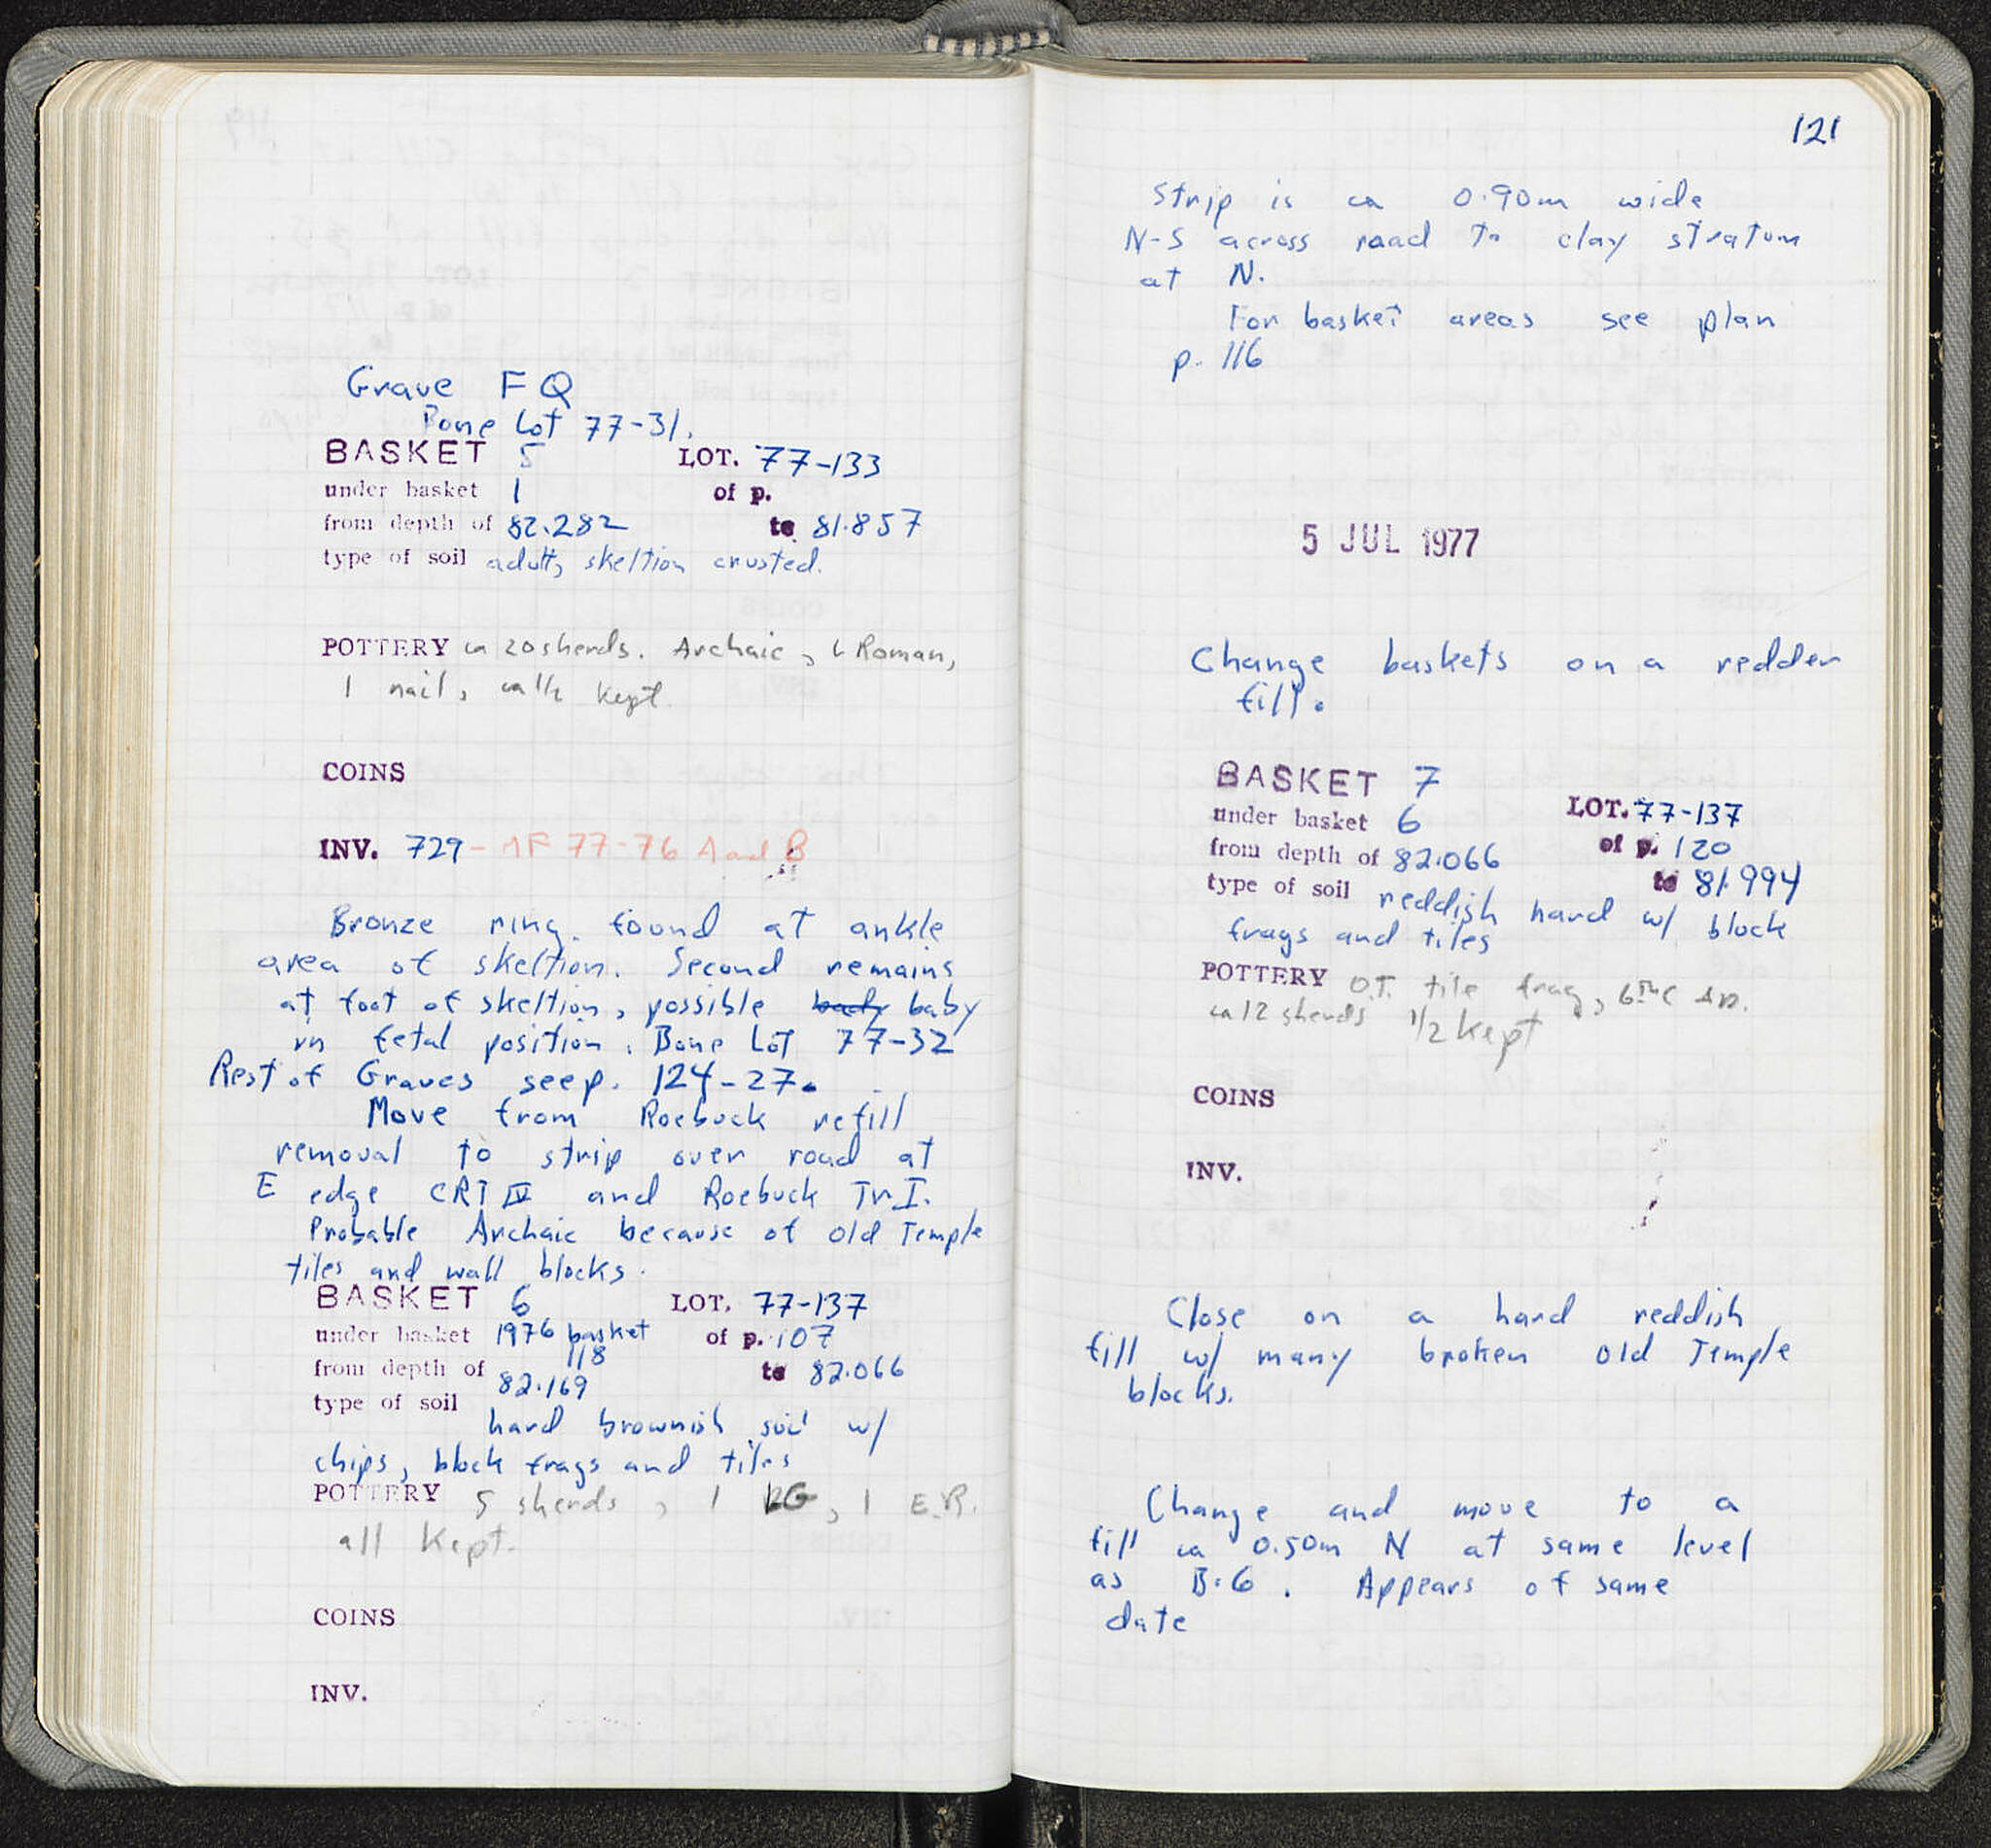 Grave FQ
Bone Lot 77-31.
BASKET 5 LOT. 77-133
under basket 1 of p.
from depth of 82.282 to 81.857
type of soil adult, skeltion crusted.
POTTERY ca 20 sherds. Archaic, L Roman,
1 nail, kept
COINS
INV. 729 - MF 77-76 A and B
Bronze ring found at ankle
area of skeltion. Second remains
at foot of skeltion, possible baby
in fetal position. Bone Lot 77-32
Rest of Graves see p. 124-27.
Move from Roebuck refill
removal to strip over road at
E edge CRT IV and Roebuck Tr I.
Probable Archaic because of Old Temple
tiles and wall blocks.
BASKET 6 LOT. 77-137
under basket 1976 basket of p. 107
118
from depth of 82.169 to 82.066
type of soil
hard brownish soil w/
chips, block frags and tiles
POTTERY 5 sherds, 1 LG, 1 E.R.
all kept.
COINS
INV.
121
Strip is ca 0.90m wide
N-S across road to clay stratum
at N.
For basket areas see plan
p. 116
5 JUL 1977
Change baskets on a redder
fill.
BASKET 7
LOT. 77-137
under basket 6
of p. 120
from depth of 82.066
to 81.994
type of soil reddish hard w/ block
frags and tiles
POTTERY O.T. tile frag, 6th C AD.
ca 12 sherds 1/2 kept
COINS
INV.
Close on a hard reddish
fill w/ many broken Old Temple
blocks.
Change and move to a
fill ca 0.50m N at same level
as B.6. Appears of same
date